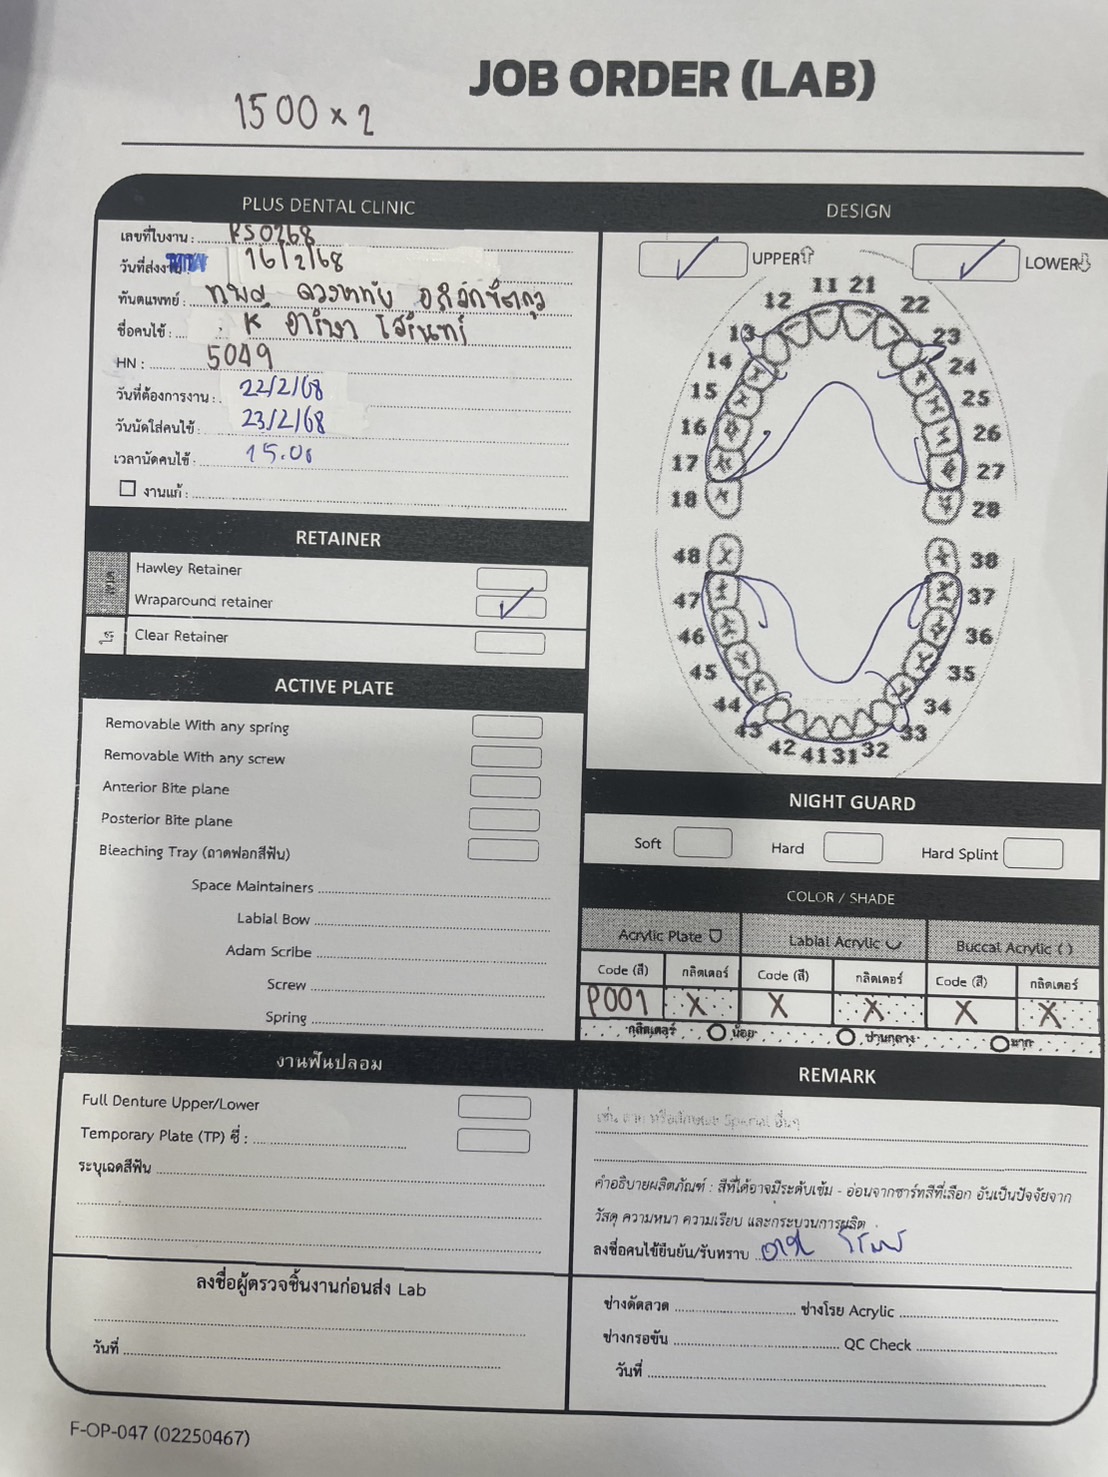 JOB ORDER (LAB)
1500 x 2
PLUS DENTAL CLINIC
เลขที่ใบงาน : PS0268
วันที่ส่งงาน 16/2/68
ทันตแพทย์ : ทพญ ดวงหทัย
ชื่อคนไข้ : K อาริษา
HN : 5049
วันที่ต้องการงาน : 22/2/68
วันนัดใส่คนไข้ : 23/2/68
เวลานัดคนไข้ : 15.00
งานแก้ :
RETAINER
ลวด
Hawley Retainer
Wraparound retainer
ใส
Clear Retainer
ACTIVE PLATE
Removable With any spring
Removable With any screw
Anterior Bite plane
Posterior Bite plane
Bleaching Tray (ถาดฟอกสีฟัน)
Space Maintainers
Labial Bow
Adam Scribe
Screw
Spring
งานฟันปลอม
Full Denture Upper/Lower
Temporary Plate (TP) ซี่ :
ระบุเฉดสีฟัน
ลงชื่อผู้ตรวจชิ้นงานก่อนส่ง Lab
วันที่
DESIGN
UPPER
LOWER
11 21
12 22
13 23
14 24
15 25
16 26
17 27
18 28
48 38
47 37
46 36
45 35
44 34
43 33
42 41 31 32
NIGHT GUARD
Soft Hard Hard Splint
COLOR / SHADE
Acrylic Plate Labial Acrylic Buccal Acrylic ( )
Code (สี) กลิตเตอร์ Code (สี) กลิตเตอร์ Code (สี) กลิตเตอร์
P001 X X X X X
กลิตเตอร์ น้อย ปานกลาง มาก
REMARK
เช่น ลาย หรือลักษณะ Special อื่นๆ
คำอธิบายผลิตภัณฑ์ : สีที่ได้อาจมีระดับเข้ม - อ่อนจากชาร์ทสีที่เลือก อันเป็นปัจจัยจาก
วัสดุ ความหนา ความเรียบ และกระบวนการผลิต
ลงชื่อคนไข้ยืนยัน/รับทราบ
ช่างดัดลวด ช่างโรย Acrylic
ช่างกรอขัน QC Check
วันที่
F-OP-047 (02250467)